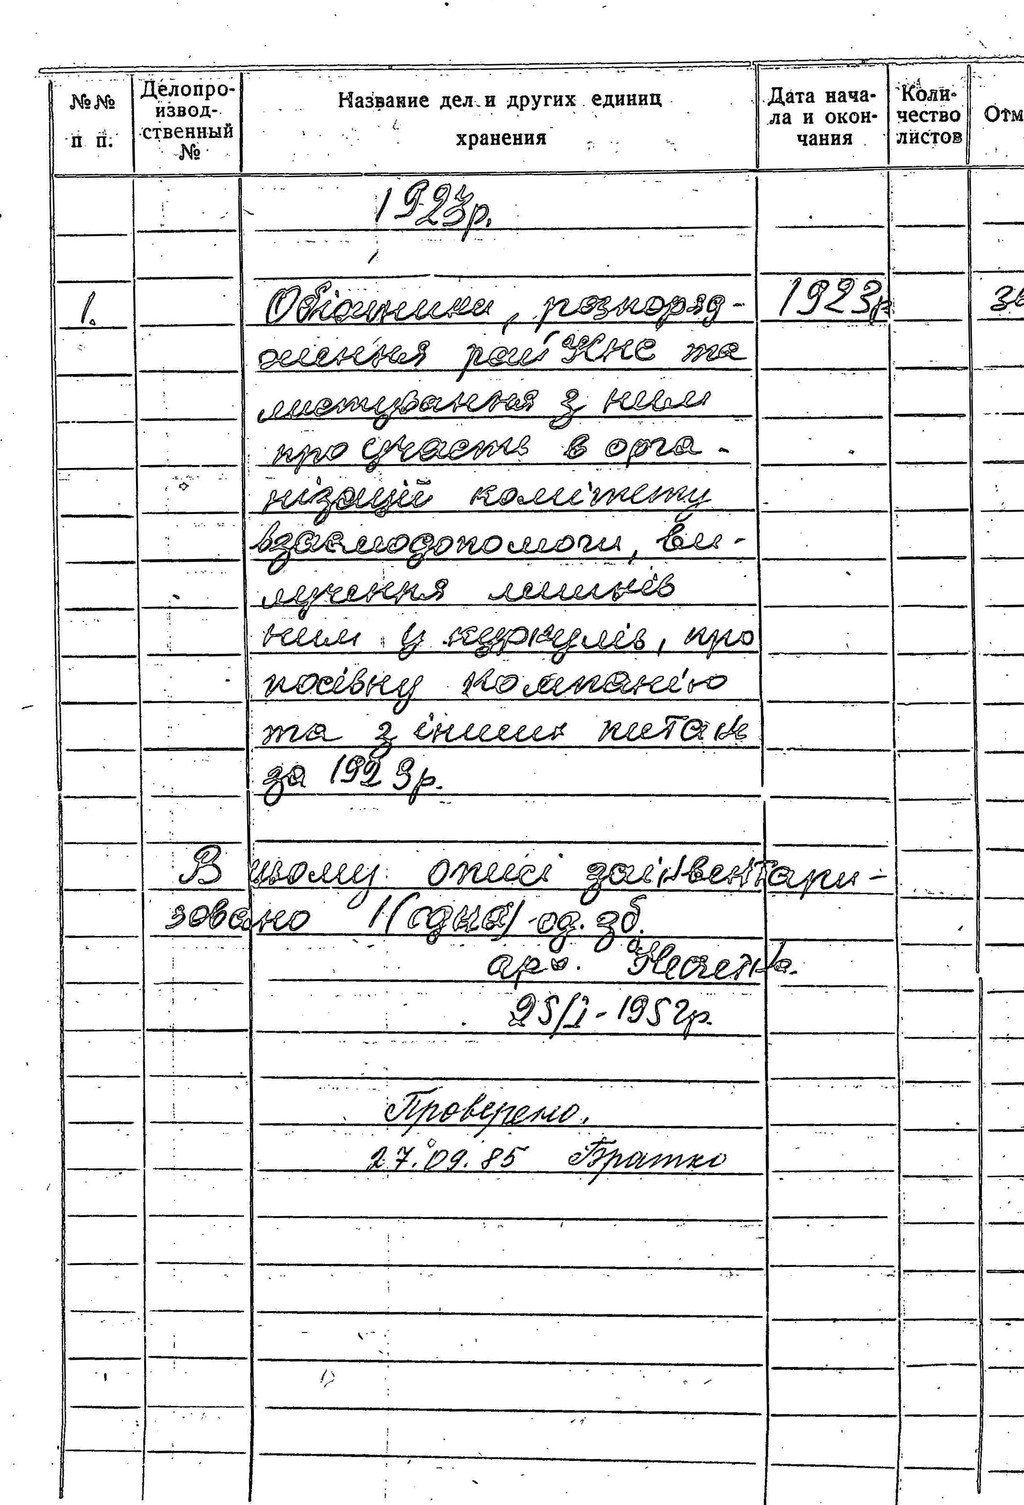 №№ п п.
Делопро-извод-ственный №
Название дел и других единиц хранения
Дата нача-ла и окон-чания
Коли-чество листов
Отм
1923р.
1. Обіжники, розпоряд- 1923р
ження рай КНС та
листування з ним
про участь в орга-
нізації комітету
взаємодопомоги, ви-
лучення лишків
ним у куркулів, про
посівну компанію
та з інших питань
за 1923р.
В цьому описі заінвентари-
зовано 1 (одна) од. зб.
арх.
25/I-1952р.
Проверено.
27.09.85 Братко